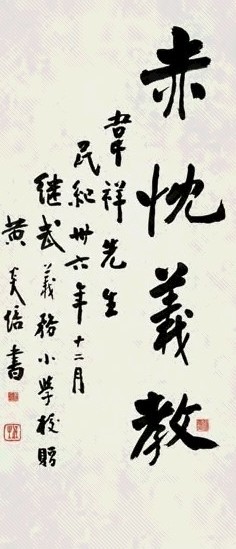 赤忱義教
韋祥先生
民紀卅六年十二月
继武義務小學校贈
黄炎培書